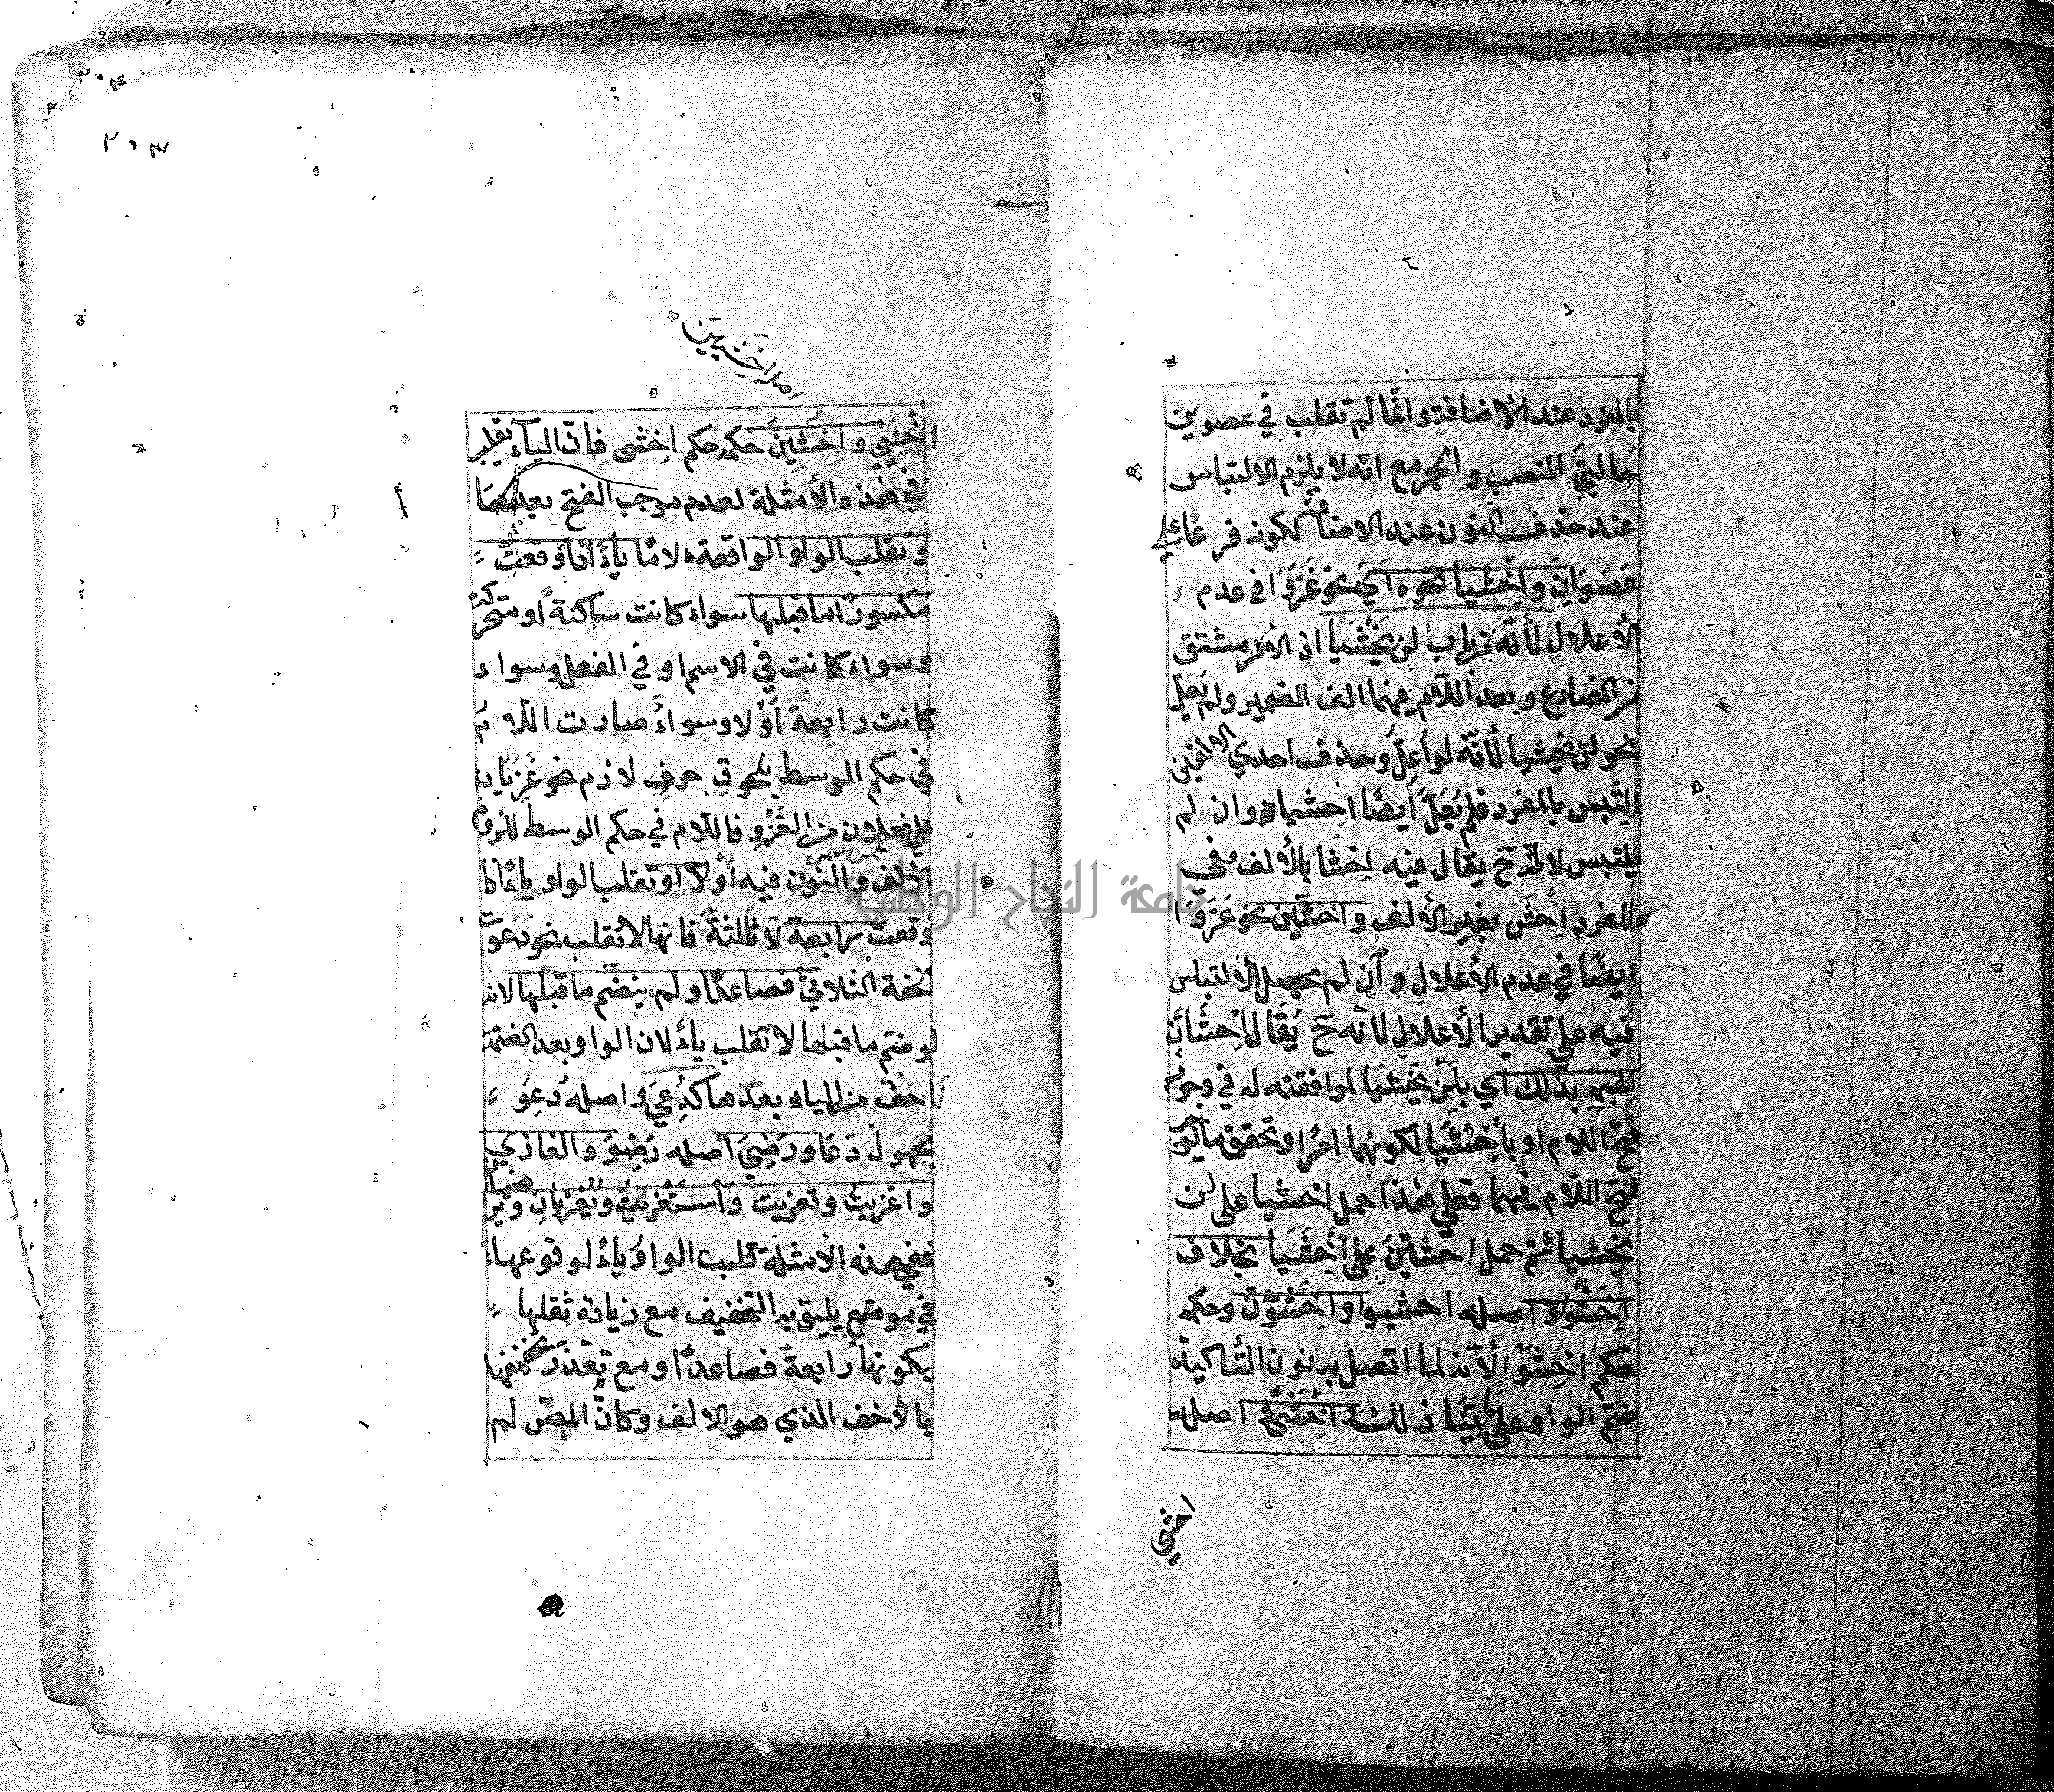 بالمفرد عند الاضافة وانما لم تقلب في عصوين
حالتي النصب والجر مع انه لا يلزم الالتباس
عند حذف النون عند الاضافة لكونه فرعا على
عَصَوَانِ واخشيا نحوه اي نحو غَزَوَا في عدم
الأعلال لأنّه من باب لن يَخْشَيَا اذ الأمر مشتق
من المضارع وبعد اللام فيهما الف الضمير ولم يعل
نحو لن يخشيا لأنّه لو أعِلَّ وحذف احدي الالفين
التبس بالمفرد فلم يُعَلّ ايضًا اخشيا وان لم
يلتبس لانّه ح يقال فيه اخشا بالألف وفي
المفرد اخش بغير الألف واخشين نحو غَزَوَا
ايضا في عدم الأعلال وان لم يحصل الالتباس
فيه على تقدير الأعلال لانّه ح يُقَال اخشانّ
لشبهه بذلك اي بلن يَخْشَيَا لموافقته له في وجوب
فتح اللام او باخشيا لكونهما امرًا وتحقق
فتح اللام فيهما فعلي هذا حمل اخشيا على لن
يخشيا ثم حمل اخشين على اخشيا بخلاف
اخشوا اصله اخشيوا واخشوُنّ وحكمه
حكم اخشوا الّا انه لما اتصل به نون التأكيد
ضمّ الواو على ذلك اخشي اصله
اخشي
٢٠٣
٢٠٣
اصله اخشيين
اخشيي واخشين حكمه حكم اخشي فانّ الياء تقلب
في هذه الأمثلة لعدم موجب الفتح بعدها
وتقلب الواو الواقعة لامًا ياءً اذا وقعت
مكسورًا ما قبلها سواء كانت ساكنة او متحركة
وسواء كانت في الاسم او في الفعل وسواء
كانت رابعةً أوْ لا وسواءً صارت اللام
في حكم الوسط بلحوق حرف لازم نحو غَزِيَان
على فعلان من الغَزْوِ فاللام في حكم الوسط للزوم
الألف والنون فيه أولا او تقلب الواو ياءً اذا
وقعت رابعة لا ثالثةً فانها لا تقلب نحو دعوت
لخفة الثلاثي فصاعدًا ولم ينضم ما قبلها لانه
لو ضم ما قبلها لا تقلب ياءً لان الواو بعد الضمة
اخف من الياء بعدها كدُعِيَ واصله دُعِوَ
مجهول دَعَا ورَضِيَ اصله رَضِوَ والغازي
واغزيت وتغزيت واستغزيت ويغزيان
ففي هذه الأمثلة قلبت الواو ياءً لوقوعها
في موضع يليق به التخفيف مع زيادة ثقلها
بكونها رابعة فصاعدًا ومع تعذر تخفيفها
بالأخف الذي هو الالف وكانّ المصّ لم
جامعة النجاح الوطنية